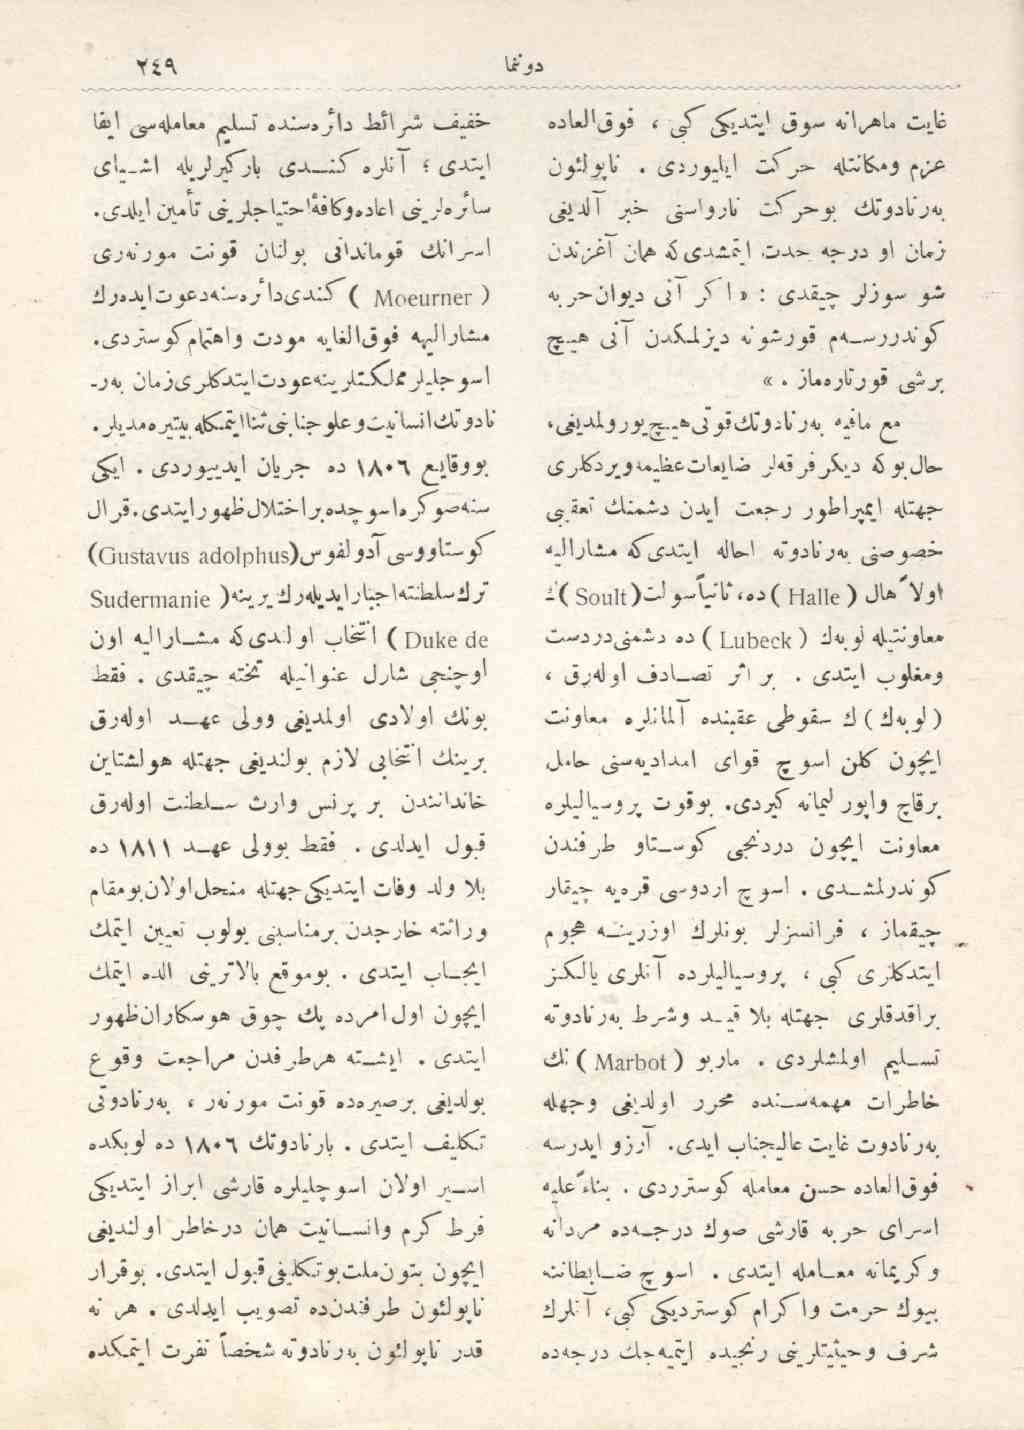 دوننما
٢٤٩
غایت ماهرانه سوق ایتدیکی کبی ، فوق‌العاده
عزم ومکانتله حرکت ایلیوردی . ناپولئون
به‌رنادوتك بوحرکت نارواسنی خبر آلدیغی
زمان او درجه حدت ایتمشدی‌که همان آغزندن
شو سوزلر چیقدی : « اکر آنی دیوان‌حربه
کوندررســه‌م قورشونه دیزلمکدن آنی هیــچ
برشی قورتاره‌ماز . »
مع مافیه به‌رنادوتك‌قوتی‌هیــچ‌یورولمدیغی،
حال‌بوکه دیکر فرقه‌لر ضایعات‌عظیمه‌ویردکلری
جهتله ایمپراطور رجعت ایدن دشمنك تعقیبی
خصوصنی به‌رنادوته احاله ایتدی‌که مشارالیه
اولاً هال ( Halle ) ده، ثانیاًسولت( Soult )ك
معاونتیله لوبه‌ك ( Lubeck ) ده دشمنی‌دردست
ومغلوب ایتدی . بر اثر تصــادف اوله‌رق ،
( لوبه‌ك ) ك سقوطی عقبنده آلمانلره معاونت
ایچون کلن اسوچ قوای امدادیه‌سنی حامل
برقاچ واپور لیمانه کیردی. بوقوت پروسیالیلره
معاونت ایچون دردنجی کوســتاو طرفندن
کوندرلمشــدی . اسوچ اردوسی قره‌یه چیقار
چیقماز ، فرانسزلر بونلرك اوزرینــه هجوم
ایتدکلری کبی ، پروسیالیلرده آنلری یالکـز
براقدقلری جهتله بلا قیــد وشرط به‌رنادوته
تســلیم اولمشلردی . ماربو ( Marbot ) نك
خاطرات مهمه‌ســنده محرر اولدیغی وجهله
به‌رنادوت غایت عالیجناب ایدی. آرزو ایدرسه
فوق‌العاده حسن معامله کوستردی . بناءً‌علیه
اسرای حربه قارشی صوك درجــه‌ده مردانه
وکریمانه معــامله ایتدی . اسوچ ضــابطاننه
بیوك حرمت واکرام کوستردیکی کبی، آنلرك
شرف وحیثیتلرینی رنجیده ایتمیه‌جك درجه‌ده
خفیف شرائط دائره‌سنده تسلیم معامله‌سی ایفا
ایتدی ؛ آنلره کنــدی بارکیرلریله اشــیای
سائره‌لرینی اعاده‌وکافهٔ‌احتیاجلرینی تأمین ایلدی.
اسرانك قوماندانی بولنان قونت مورنه‌ری
( Moeurner ) کندی‌دائره‌سنه‌دعوت‌ایده‌رك
مشارالیهه فوق‌الغایه مودت واهتمام‌کوستردی.
اسوجلیلر مملکتلرینه‌عودت‌ایتدکلری‌زمان به‌ر-
نادوتك‌انسانیت‌وعلوجنابنی‌ثناایتمکله‌بیتیره‌مدیلر.
بووقایع ١٨٠٦ ده جریان ایدییوردی . ایکی
سنه‌صوکره‌اسوچده‌براختلال‌ظهورایتدی.قرال
کوستاووسی آدولفوس(Gustavus adolphus)
ترك‌سلطنته‌اجبارایدیله‌رك‌یرینه( Sudermanie
Duke de ) انتخاب اولندی‌که مشــارالیه اون
اوچنجی شارل عنوانیله تخته چیقدی . فقط
بونك اولادی اولمدیغی وولی عهــد اوله‌رق
برینك انتخابی لازم بولندیغی جهتله هولشتاین
خاندانندن بر پرنس وارث ســلطنت اوله‌رق
قبول ایدلدی . فقط بوولی عهــد ١٨١١ ده
بلا ولد وفات ایتدیکی‌جهتله منحل‌اولان‌بومقام
وراثته خارجدن برمناسبنی بولوب تعیین ایتمك
ایجــاب ایتدی . بوموقع بالاترینی الده ایتمك
ایچون اول‌امرده پك چوق هوسکاران‌ظهور
ایتدی . ایشــته هرطرفدن مراجعت وقوع
بولدیغی برصیره‌ده قونت مورنه‌ر ، به‌رنادوتی
تکلیف ایتدی . بارنادوتك ١٨٠٦ ده لوبکده
اســیر اولان اسوجلیلره قارشی ابراز ایتدیکی
فرط کرم وانســانیت همان درخاطر اولندیغی
ایچون بتون‌ملت‌بوتکلیفی‌قبول ایتدی. بوقرار
ناپولئون طرفندن‌ده تصویب ایدلدی . هر نه
قدر ناپولئون به‌رنادوته شخصاً نفرت ایتمکده